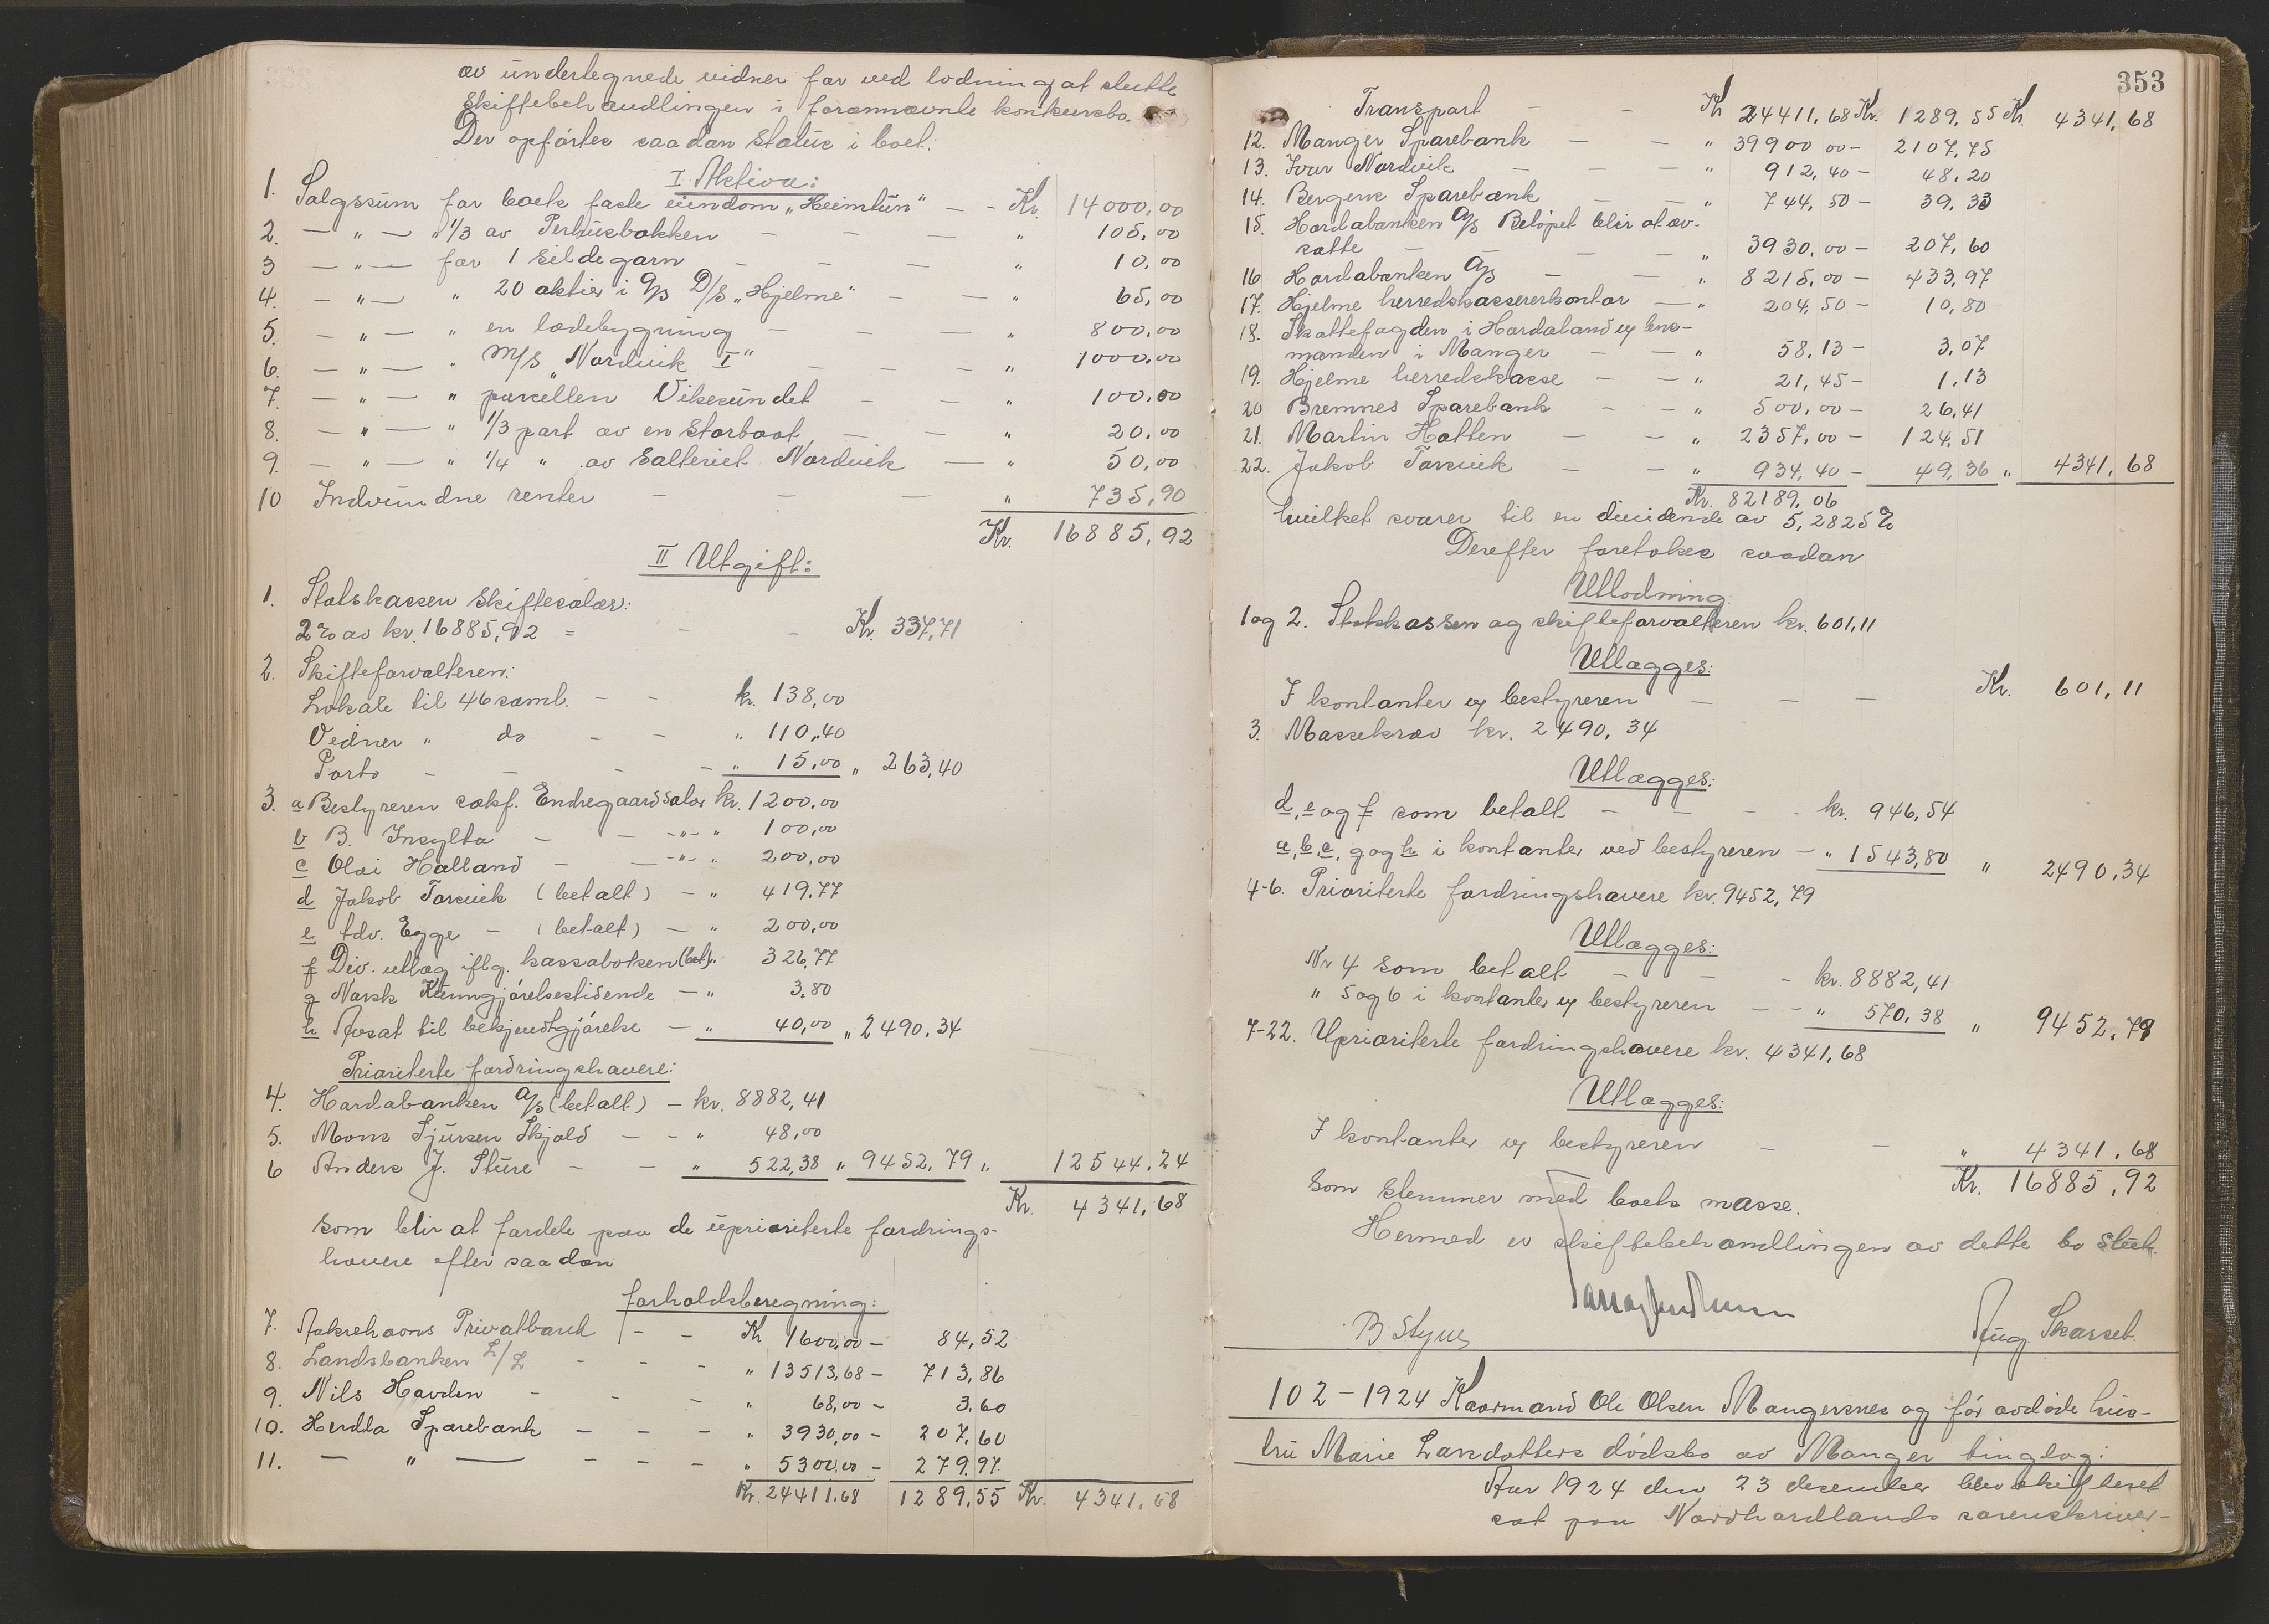 av undertegnede vidner for ved lodning at slutte
skiftebehandlingen i forannævnte konkursbo.
Der opførtes saadan status i boet:
I Aktiva:
1. Salgssum for boets faste eiendom „Heimtun" — - Kr. 14000,00
2. — " — " 1/3 av Perhusbakken — — — " 105,00
3 — " — for 1 sildegarn — — — " 10,00
4. — " — " 20 aktier i A/S D/S „Hjelme" - — " 65,00
5. — " — " en lødebygning — — — " 800,00
6. — " — " M/S „Nordvik I" — — — " 1000,00
7. — " — " parcellen Vikesundet — — " 100,00
8. — " — " 1/3 part av en storbaat — — " 20,00
9. — " — " 1/4 " av salteriet Nordvik — " 50,00
10 Indvundne renter — — — " 735,90
Kr. 16885,92
II Utgift:
1. Statskassen skiftesalær:
2% av kr. 16885,92 = - - Kr. 337,71
2. Skifteforvalteren:
Lokale til 46 saml. - - kr. 138,00
Vidner " do - - " 110,40
Porto - - - - " 15,00 " 263,40
3. a Bestyreren sakf. Endregaard salær kr. 1200,00
b B. Insylta - - -"- " 100,00
c Olai Halland - - -"- " 200,00
d Jakob Torsvik (betalt) - " 419,77
e adv. Egge - (betalt) - " 200,00
f Div. utlæg iflg. kassaboken (bet). " 326,77
g Norsk Kunngjørelsestidende - " 3,80
h Avsat til bekjendtgjørelse - " 40,00 " 2490,34
Prioriterte fordringshavere:
4. Hordabanken A/S (betalt) - kr. 8882,41
5. Mons Sjursen Skjold - - " 48,00
6 Anders J. Sture - - " 522,38 " 9452,79 " 12544,24
Kr. 4341,68
som blir at fordele paa de uprioriterte fordrings-
havere efter saadan
forholdsberegning:
7. Aakrehavns Privatbank - - Kr 1600,00 - 84,52
8. Landsbanken L/L - - - " 13513,68 - 713,86
9. Nils Havden - - - " 68,00 - 3,60
10. Herdla Sparebank - - - " 3930,00 - 207,60
11. — " — - - - " 5300,00 - 279,97
Kr. 24411,68 1289,55 Kr. 4341,68
353
Transport - - Kr 24411,68 Kr. 1289,55 Kr. 4341,68
12. Manger Sparebank - - " 39900 00 - 2107,75
13. Ivar Nordvik - - - " 912,40 - 48,20
14. Bergens Sparebank - - " 744,50 - 39,33
15. Hordabanken A/S Beløpet blir at av-
sætte - - - " 3930,00 - 207,60
16 Hordabanken A/S - - " 8215,00 - 433,97
17. Hjelme herredskassererkontor - " 204,50 - 10,80
18. Skattefogden i Hordaland v/ lens-
manden i Manger - - " 58,13 - 3,07
19. Hjelme herredskasse - - " 21,45 - 1,13
20 Bremnes Sparebank - - " 500,00 - 26,41
21. Martin Hatten - - " 2357,00 - 124,51
22. Jakob Torsvik - - " 934,40 - 49,36 " 4341,68
Kr. 82189,06
hvilket svarer til en dividende av 5,2825 %
Derefter foretokes saadan
Utlodning:
1 og 2. Statskassen og skifteforvalteren kr. 601,11
Utlægges:
I kontanter v/ bestyreren — — — Kr. 601,11
3. Massekrav kr. 2490,34
Utlægges:
d, e og f som betalt - - - kr. 946,54
a, b, c, g og h i kontanter ved bestyreren - " 1543,80 " 2490,34
4-6. Prioriterte fordringshavere kr. 9452,79
Utlægges:
Nr 4 som betalt - - - kr. 8882,41
" 5 og 6 i kontanter v/ bestyreren - - " 570,38 " 9452,79
7-22. Uprioriterte fordringshavere kr. 4341,68
Utlægges:
I kontanter v/ bestyreren - - " 4341,68
Kr. 16885,92
som stemmer med boets masse.
Hermed er skiftebehandlingen av dette bo slut.
B Styve Aug. Skarset
102 - 1924 Kaarmand Ole Olsen Mangersnes og før avdøde hus-
tru Marie Larsdatters dødsbo av Manger tinglag:
Aar 1924 den 23 desember blev skifteret
sat paa Nordhordlands sorenskriver-